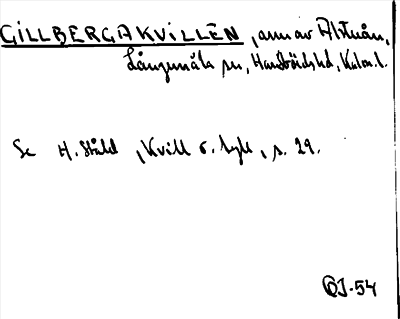 GILLBERGAKVILLEN, arm av Alsterån,
Långemåla sn, Handbörds hd, Kalm. l.
Se H. Ståhl, Kvill o. Kyll, s. 29.
OJ-54